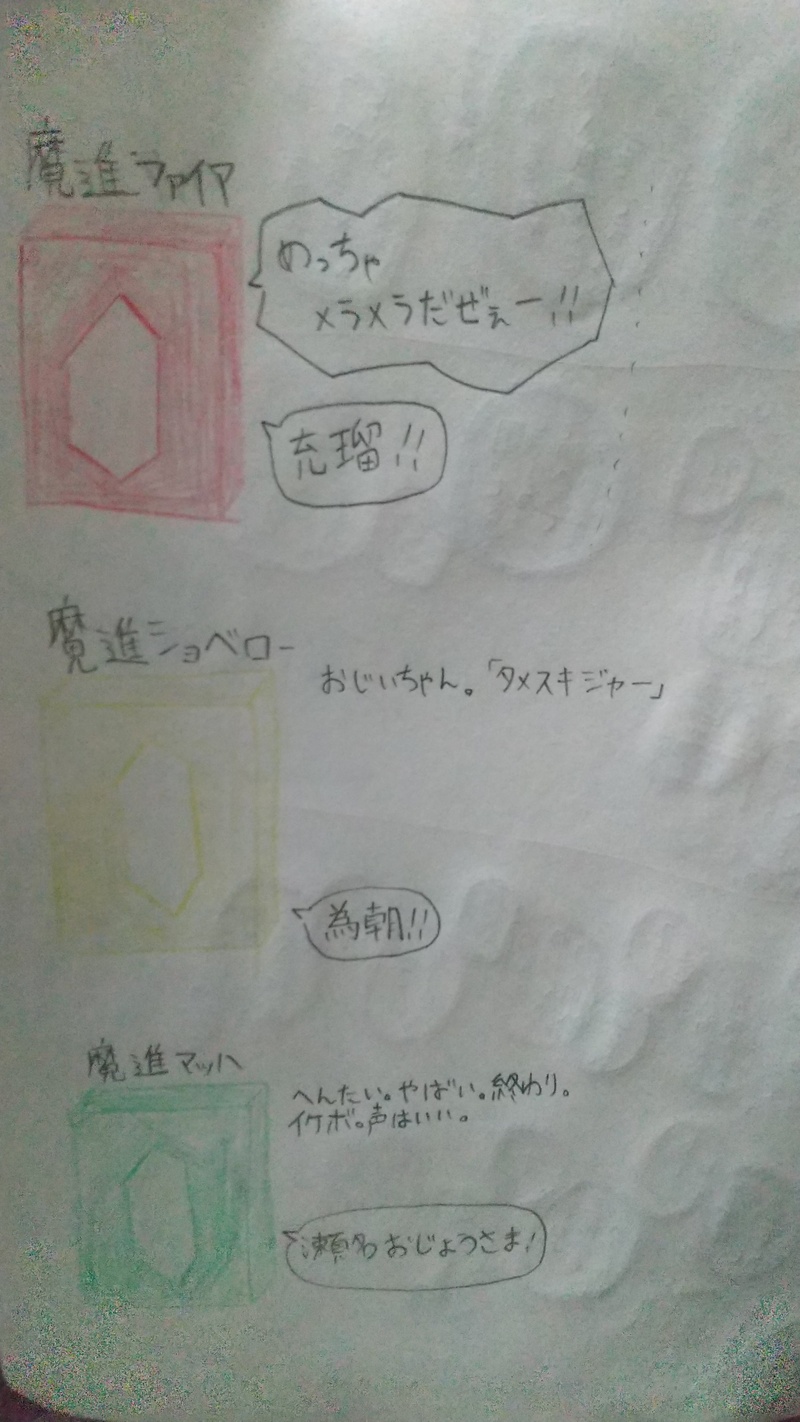 魔進ファイア
めっちゃ
メラメラだぜぇー!!
充瑠!!
魔進ショベロー
おじいちゃん。「タメスキジャー」
為朝!!
魔進マッハ
へんたい。やばい。終わり。
イケボ。声はいい。
瀬奈おじょうさま!